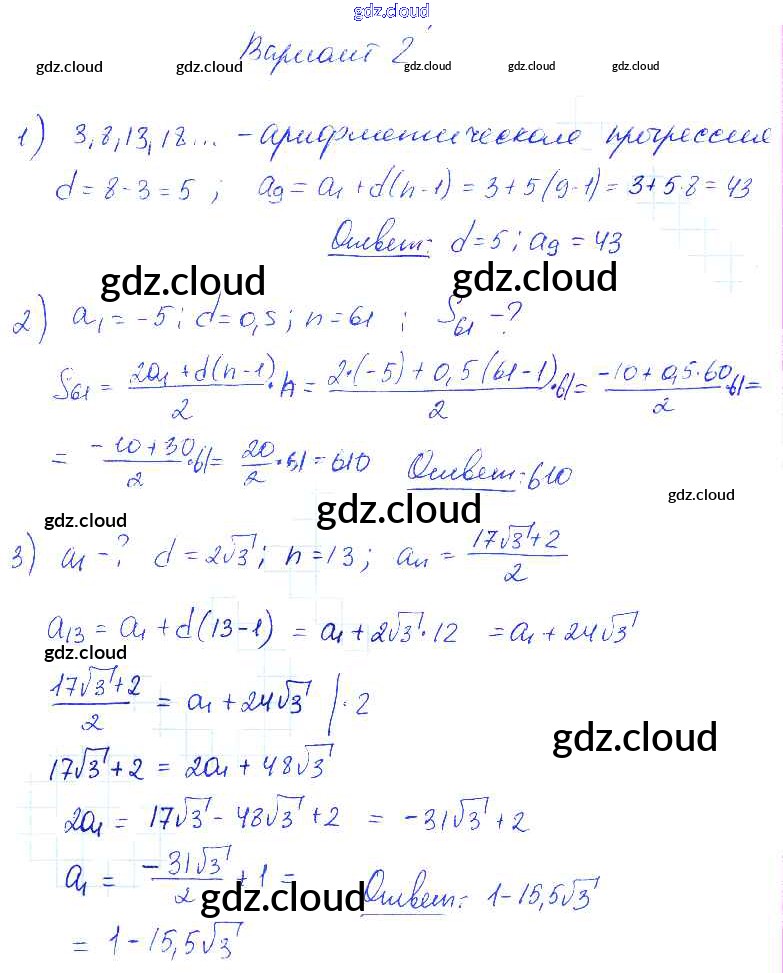 gdz.cloud
Вариант 2
gdz.cloud gdz.cloud gdz.cloud gdz.cloud gdz.cloud
1) 3, 8, 13, 18... - арифметическая прогрессия
d = 8 - 3 = 5 ; a₉ = a₁ + d(n-1) = 3 + 5(9-1) = 3 + 5·8 = 43
Ответ: d = 5 ; a₉ = 43
gdz.cloud gdz.cloud
2) a₁ = -5 ; d = 0,5 ; n = 61 ; S₆₁ - ?
S₆₁ = (2a₁ + d(n-1))/2 · n = (2·(-5) + 0,5(61-1))/2 · 61 = (-10 + 0,5·60)/2 · 61 =
= (-10 + 30)/2 · 61 = 20/2 · 61 = 610 Ответ: 610
gdz.cloud gdz.cloud gdz.cloud
3) a₁ - ? d = 2√3 ; n = 13 ; aₙ = (17√3 + 2)/2
a₁₃ = a₁ + d(13-1) = a₁ + 2√3 · 12 = a₁ + 24√3
gdz.cloud
(17√3 + 2)/2 = a₁ + 24√3 | · 2
gdz.cloud
17√3 + 2 = 2a₁ + 48√3
2a₁ = 17√3 - 48√3 + 2 = -31√3 + 2
a₁ = (-31√3)/2 + 1 = Ответ: 1 - 15,5√3
gdz.cloud gdz.cloud
= 1 - 15,5√3